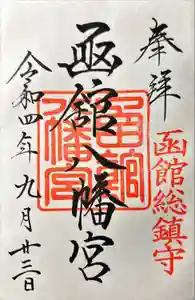 奉拝
函館総鎮守
函館八幡宮
令和四年九月廿三日